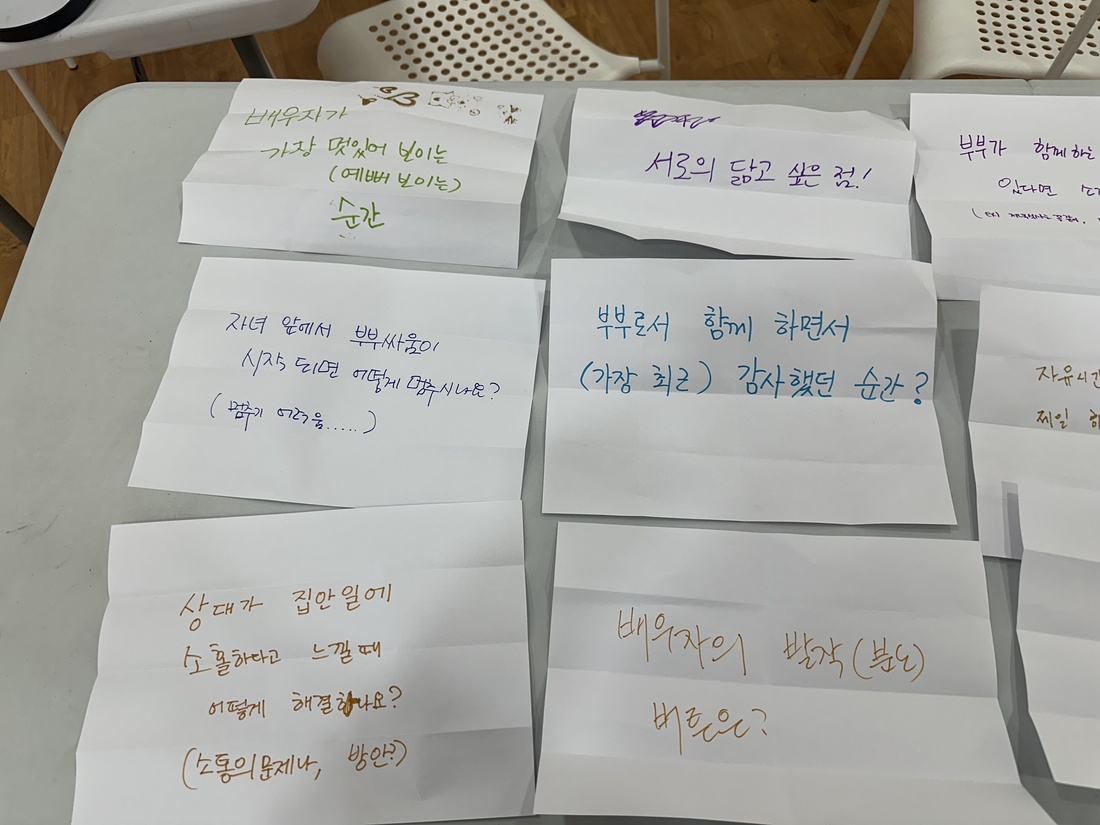 배우자가
가장 멋있어 보이는
(예뻐 보이는)
순간
서로의 닮고 싶은 점!
부부가 함께 하는
있다면
자녀 앞에서 부부싸움이
시작 되면 어떻게 멈추시나요?
(멈추기 어려움.....)
부부로서 함께 하면서
(가장 최근) 감사했던 순간?
자유시간
제일
상대가 집안일에
소홀하다고 느낄 때
어떻게 해결하나요?
(소통의 문제나, 방안?)
배우자의 발작(분노)
버튼은?